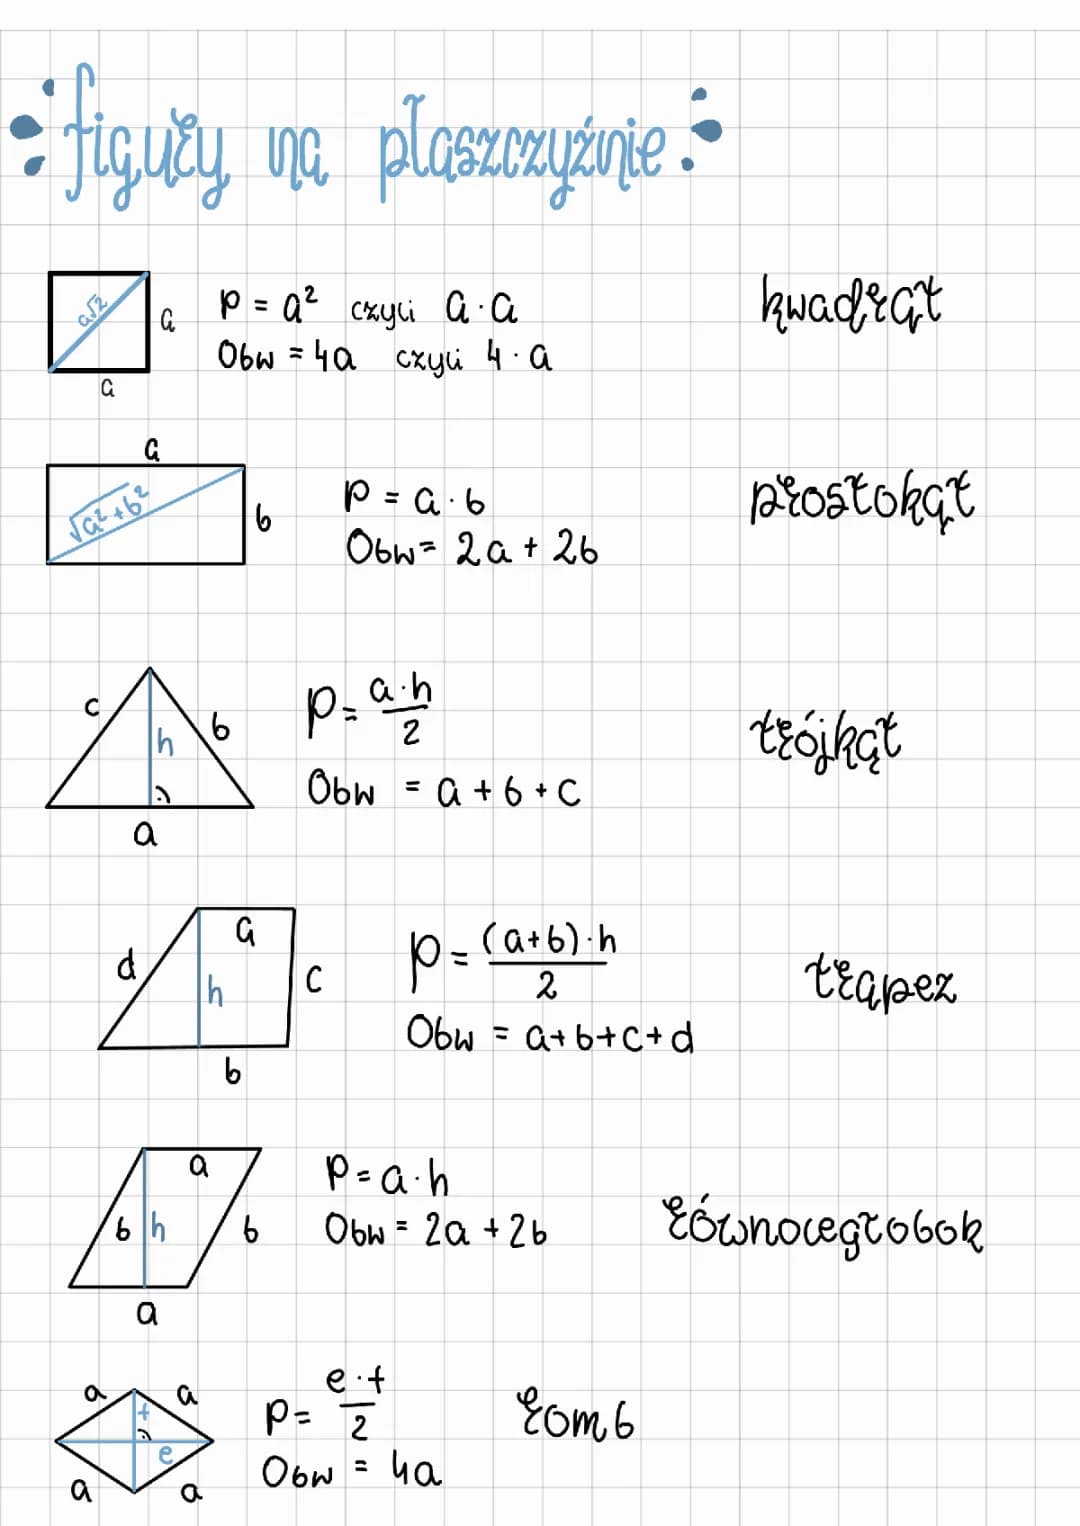 figury na płaszczyźnie
a√2
a
a
P = a² czyli a · a
Obw = 4a czyli 4 · a
kwadrat
a
√a²+b²
b
P = a · b
Obw = 2a + 2b
prostokąt
c
h
b
a
P = a·h/2
Obw = a + b + c
trójkąt
a
d
h
c
b
P = (a+b)·h/2
Obw = a+b+c+d
trapez
a
b
h
b
a
P = a·h
Obw = 2a + 2b
równoległobok
a
a
f
e
a
a
P = e·f/2
Obw = 4a
romb